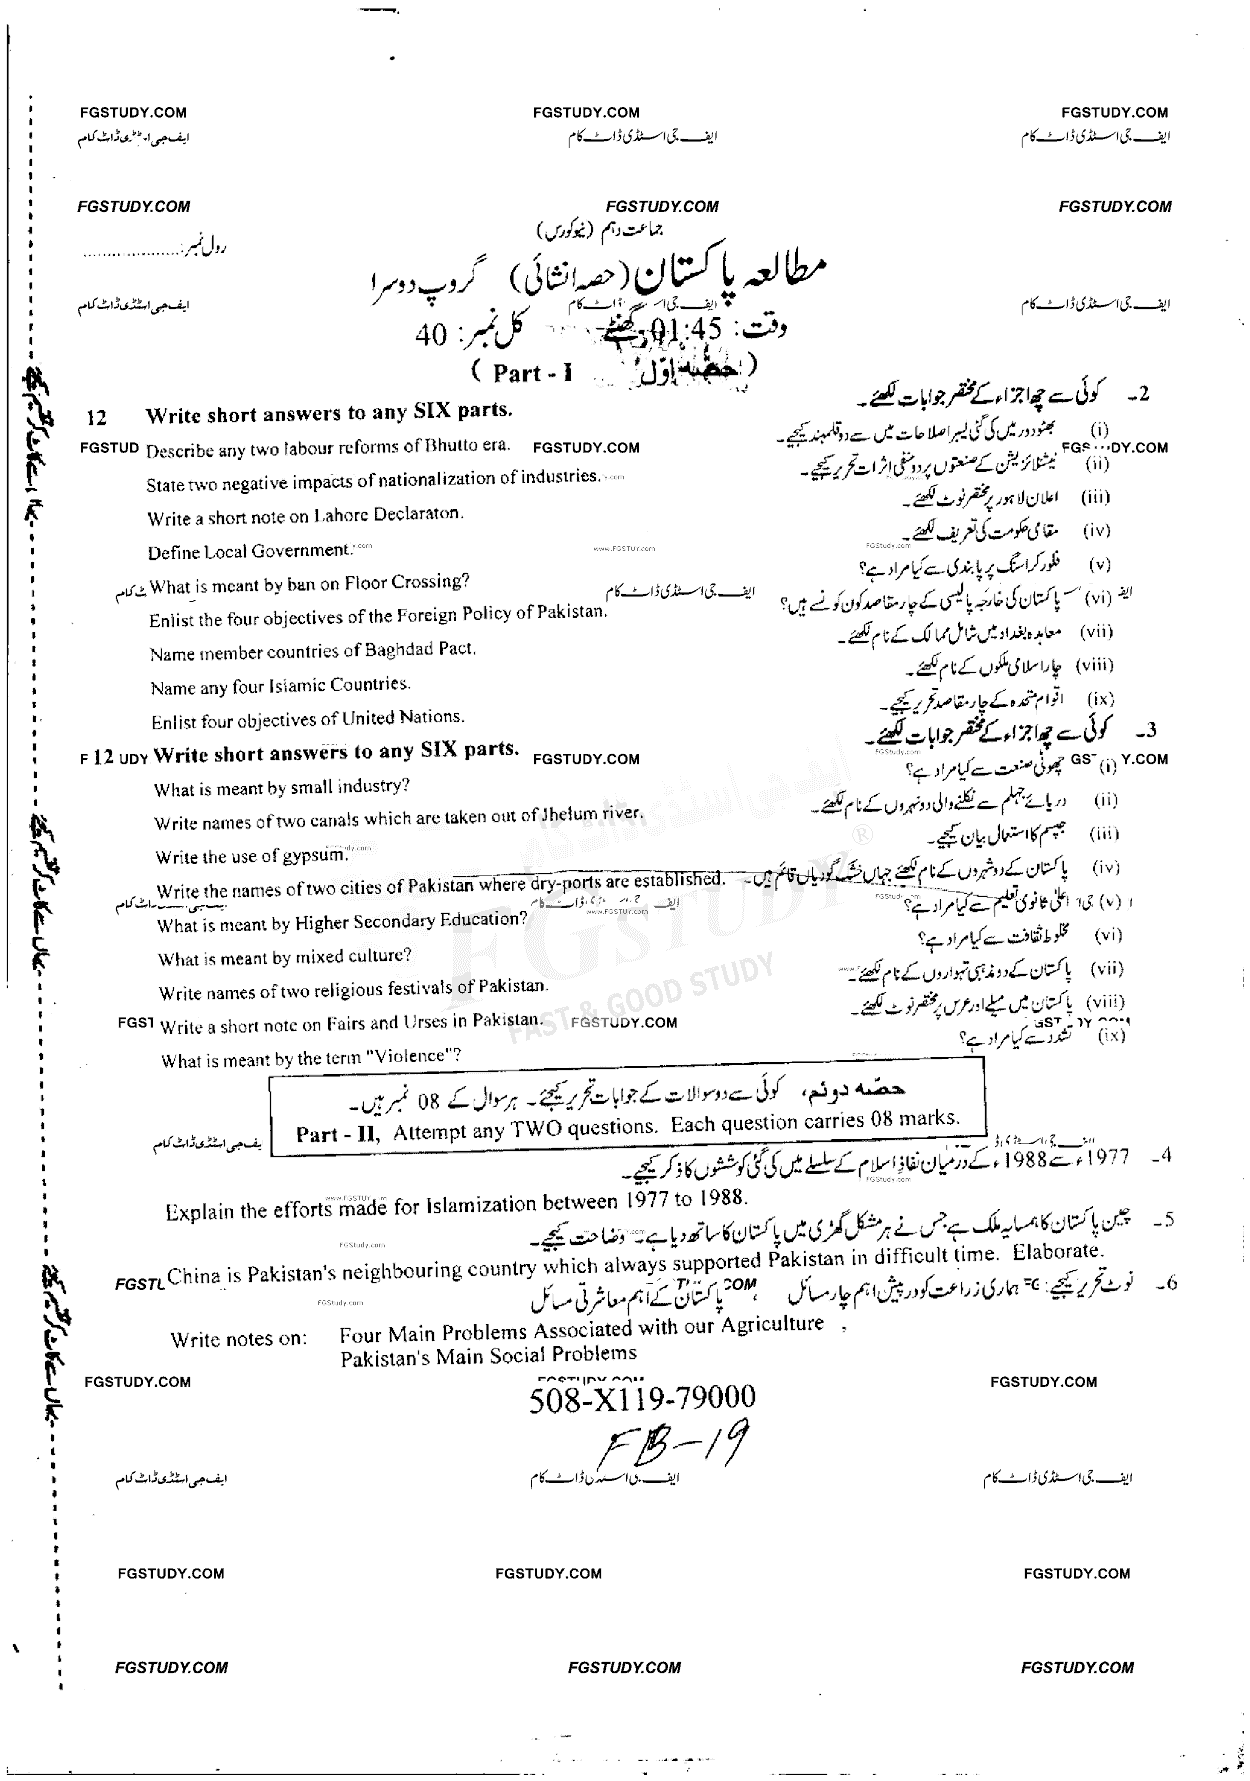 FGSTUDY.COM FGSTUDY.COM FGSTUDY.COM
ایف جی اسٹڈی ڈاٹ کام ایف جی اسٹڈی ڈاٹ کام ایف جی اسٹڈی ڈاٹ کام
FGSTUDY.COM FGSTUDY.COM FGSTUDY.COM
جماعت دہم (نیو کورس)
رول نمبر:....................
مطالعہ پاکستان (حصہ انشائی) گروپ دوسرا
ایف جی اسٹڈی ڈاٹ کام ایف جی اسٹڈی ڈاٹ کام
وقت: 01:45 گھنٹے کل نمبر: 40
( Part - I حصہ اوّل )
2- کوئی سے چھ اجزاء کے مختصر جوابات لکھئے۔
12 Write short answers to any SIX parts.
(i) بھٹو دور میں کی گئی لیبر اصلاحات میں سے دو قلمبند کیجیے۔
FGSTUD Describe any two labour reforms of Bhutto era. FGSTUDY.COM
(ii) نیشنلائزیشن کے صنعتوں پر دو منفی اثرات تحریر کیجیے۔
State two negative impacts of nationalization of industries.
(iii) اعلان لاہور پر مختصر نوٹ لکھئے۔
Write a short note on Lahore Declaraton.
(iv) مقامی حکومت کی تعریف لکھئے۔
Define Local Government.
(v) فلور کراسنگ پر پابندی سے کیا مراد ہے؟
What is meant by ban on Floor Crossing?
ایف جی اسٹڈی ڈاٹ کام
(vi) پاکستان کی خارجہ پالیسی کے چار مقاصد کون کونسے ہیں؟
Enlist the four objectives of the Foreign Policy of Pakistan.
(vii) معاہدہ بغداد میں شامل ممالک کے نام لکھئے۔
Name member countries of Baghdad Pact.
(viii) چار اسلامی ملکوں کے نام لکھئے۔
Name any four Islamic Countries.
(ix) اقوام متحدہ کے چار مقاصد تحریر کیجیے۔
Enlist four objectives of United Nations.
3- کوئی سے چھ اجزاء کے مختصر جوابات لکھئے۔
F 12 UDY Write short answers to any SIX parts. FGSTUDY.COM
(i) چھوٹی صنعت سے کیا مراد ہے؟
What is meant by small industry?
(ii) دریائے جہلم سے نکلنے والی دو نہروں کے نام لکھئے۔
Write names of two canals which are taken out of Jhelum river.
(iii) جپسم کا استعمال بیان کیجیے۔
Write the use of gypsum.
(iv) پاکستان کے دو شہروں کے نام لکھئے جہاں خشک گودیاں قائم ہیں۔
Write the names of two cities of Pakistan where dry-ports are established.
(v) اعلیٰ ثانوی تعلیم سے کیا مراد ہے؟
www.FGSTUY.com
What is meant by Higher Secondary Education?
(vi) مخلوط ثقافت سے کیا مراد ہے؟
What is meant by mixed culture?
(vii) پاکستان کے دو مذہبی تہواروں کے نام لکھئے۔
Write names of two religious festivals of Pakistan.
(viii) پاکستان میں میلے اور عرس پر مختصر نوٹ لکھئے۔
FGST Write a short note on Fairs and Urses in Pakistan. FGSTUDY.COM
(ix) تشدد سے کیا مراد ہے؟
What is meant by the term "Violence"?
FGSTUDY®
FAST & GOOD STUDY
حصّہ دوئم، کوئی سے دو سوالات کے جوابات تحریر کیجیئے۔ ہر سوال کے 08 نمبر ہیں۔
Part - II, Attempt any TWO questions. Each question carries 08 marks.
ایف جی اسٹڈی ڈاٹ کام
4- 1977ء سے 1988ء کے درمیان نفاذِ اسلام کے سلسلے میں کی گئی کوششوں کا ذکر کیجیے۔
Explain the efforts made for Islamization between 1977 to 1988.
5- چین پاکستان کا ہمسایہ ملک ہے جس نے ہر مشکل گھڑی میں پاکستان کا ساتھ دیا ہے۔ وضاحت کیجیے۔
FGSTU China is Pakistan's neighbouring country which always supported Pakistan in difficult time. Elaborate.
6- نوٹ تحریر کیجیے: ہماری زراعت کو درپیش اہم چار مسائل ، پاکستان کے اہم معاشرتی مسائل
Write notes on: Four Main Problems Associated with our Agriculture ,
Pakistan's Main Social Problems
FGSTUDY.COM FGSTUDY.COM FGSTUDY.COM
508-X119-79000
FB-19
ایف جی اسٹڈی ڈاٹ کام ایف جی اسٹڈی ڈاٹ کام ایف جی اسٹڈی ڈاٹ کام
FGSTUDY.COM FGSTUDY.COM FGSTUDY.COM
FGSTUDY.COM FGSTUDY.COM FGSTUDY.COM